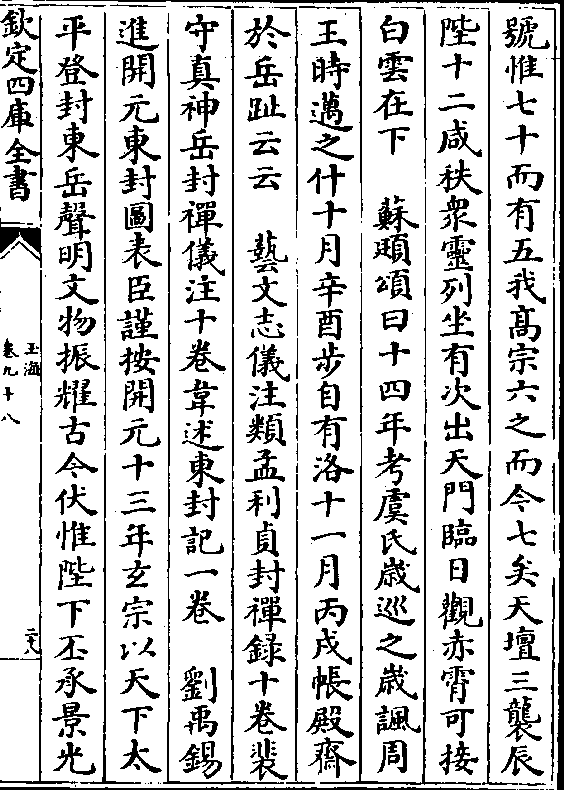 號惟七十而有五我髙宗六之而今七矣天壇三襲辰
陛十二咸秩衆靈列坐有次出天門臨日觀赤霄可接
白雲在下　蘇頲頌曰十四年考虞氏歳巡之歳諷周
王時邁之什十月辛酉步自有洛十一月丙戌帳殿齋
於岳趾云云　藝文志儀注類孟利貞封禪録十卷裴
守真神岳封禪儀注十卷韋述東封記一卷　劉禹錫
進開元東封圖表臣謹按開元十三年玄宗以天下太
平登封東岳聲明文物振耀古今伏惟陛下丕承景光
欽定四庫全書
玉海
卷九十八
二十八